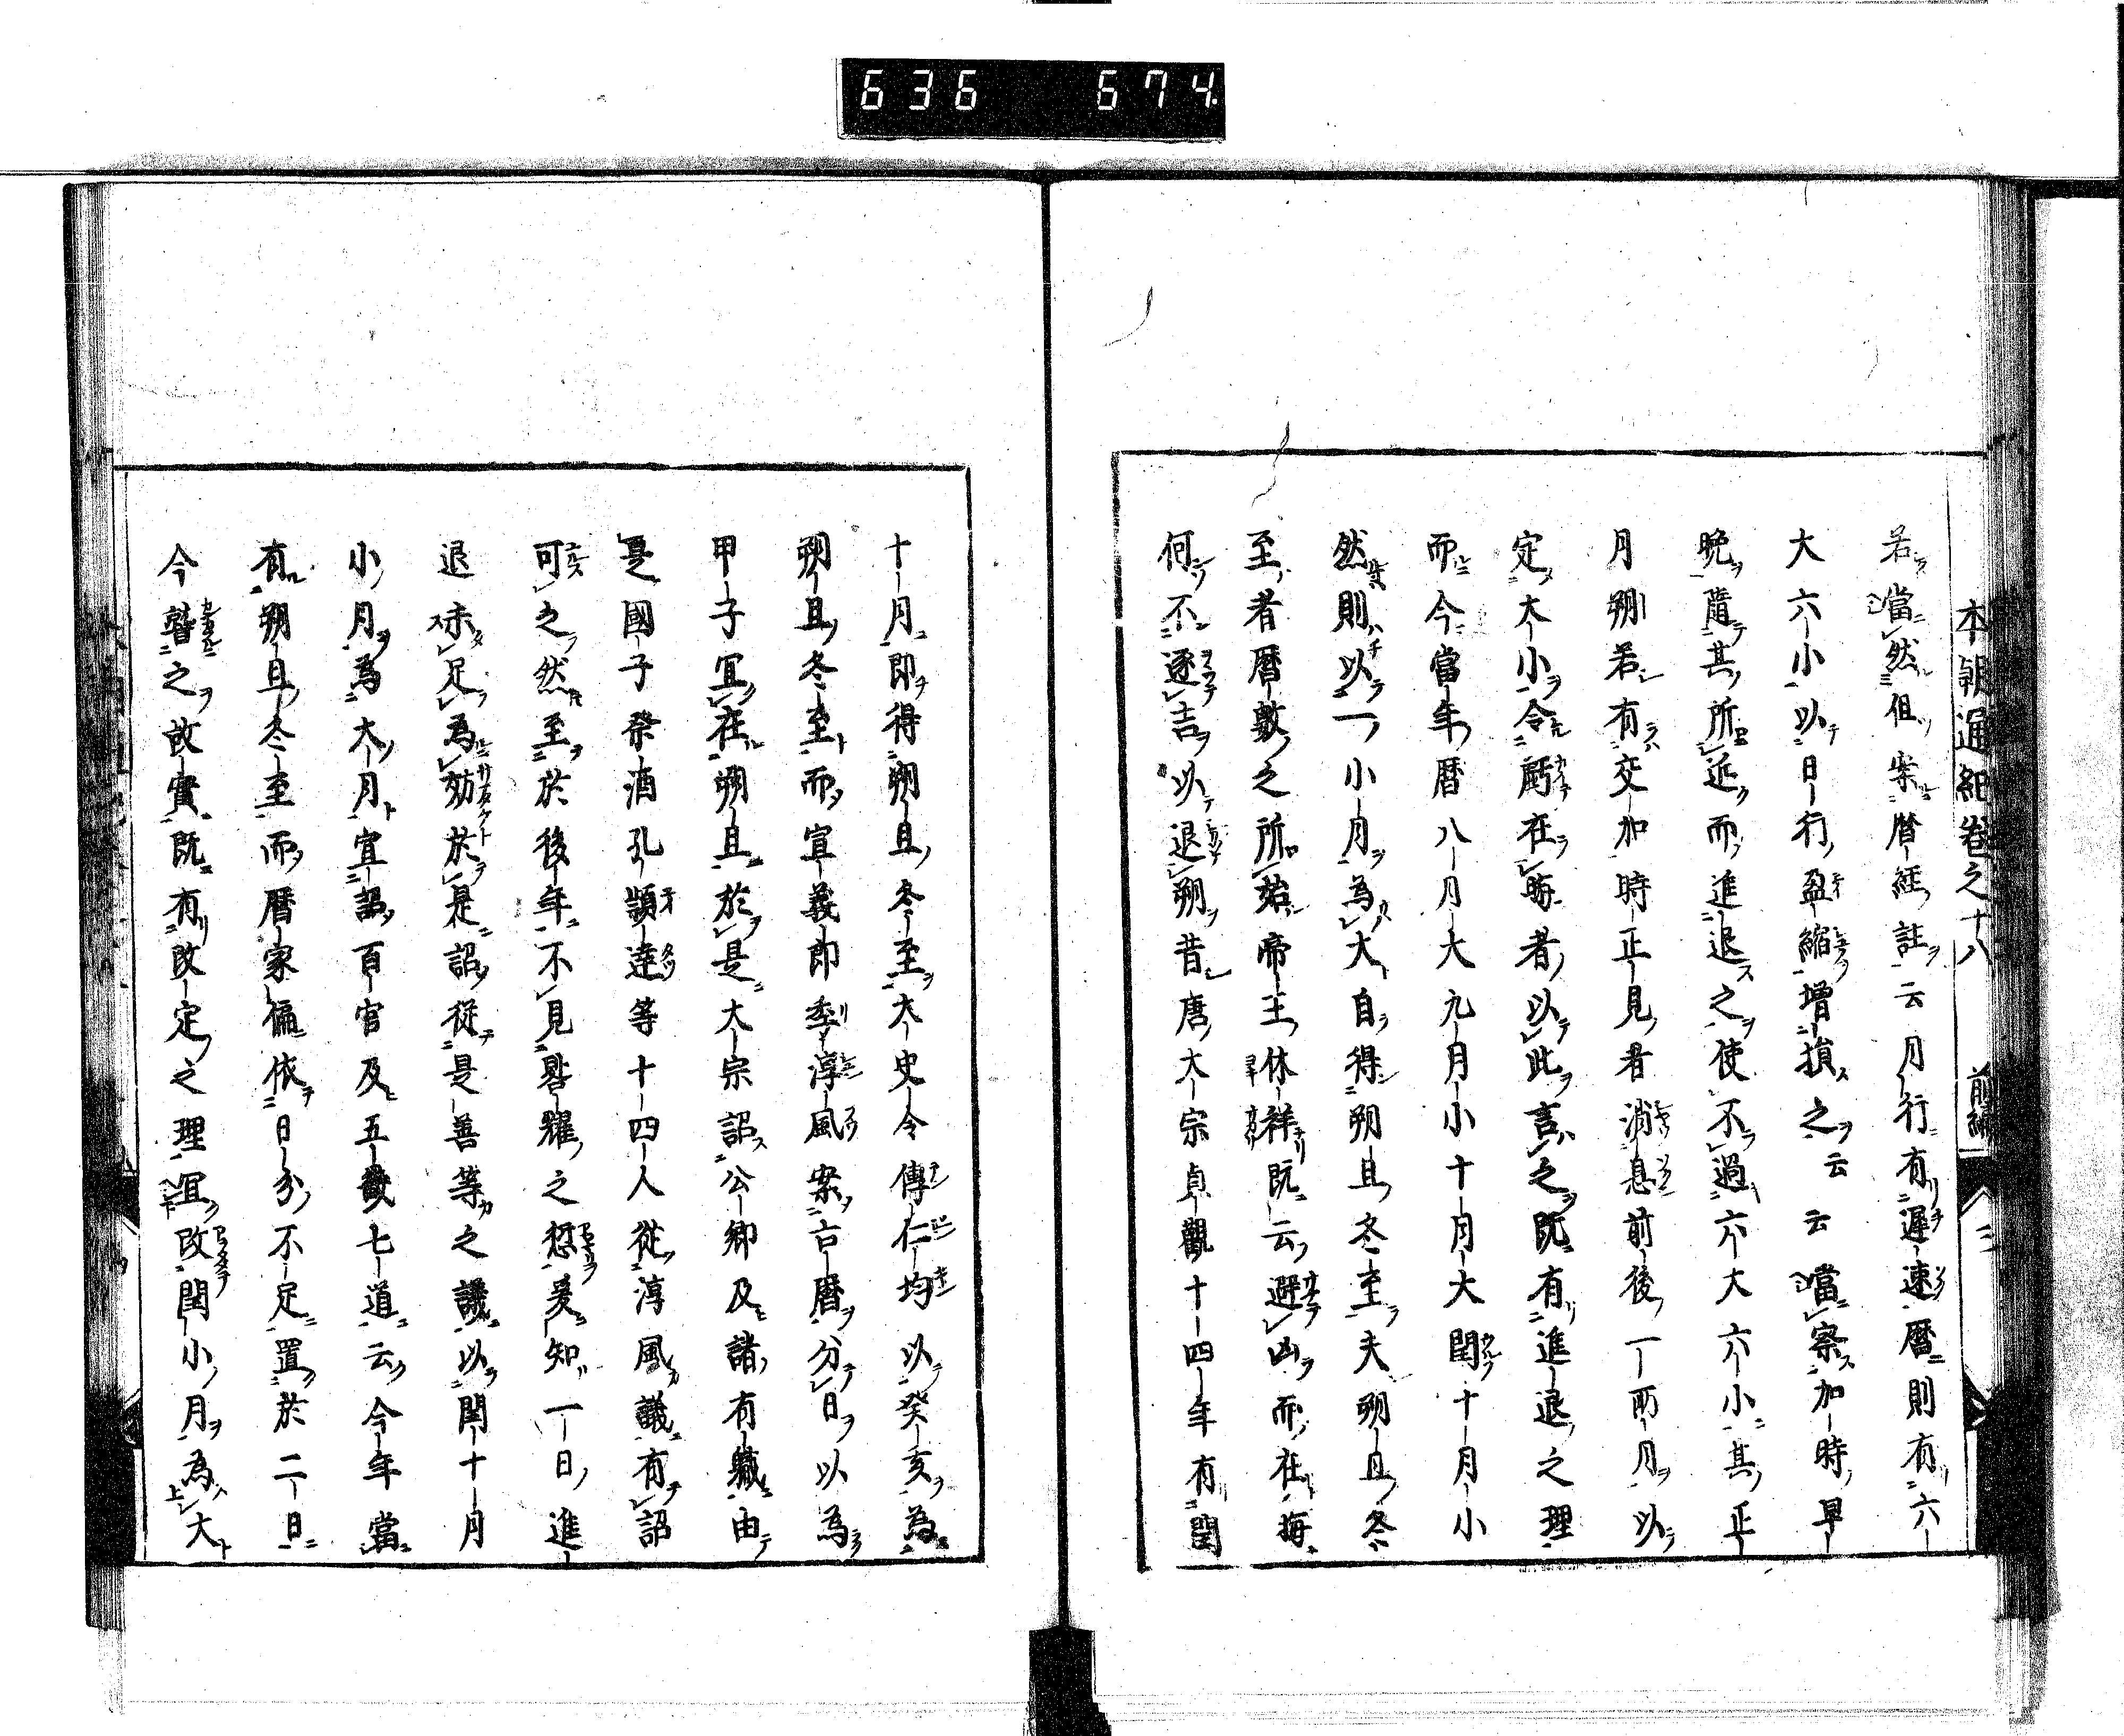 636 674.
本朝通紀卷之十八 前編 三
若當然但案暦經註云月行有遲速暦則有六
大六小以日行盈縮増損之云云當察加時早
晩隨其所近而進退之使不過六大六小其正
月朔若有交加時正見者消息前後一兩月以
定大小令虧在晦者以此言之既有進退之理
而今當年暦八月大九月小十月大閏十月小
然則以一小月為大自得朔旦冬至夫朔旦冬
至者暦數之所始帝王休祥既云避凶而在晦
何不逐吉以退朔昔唐大宗貞觀十四年有閏
十月即得朔旦冬至大史令傅仁均以癸亥為
朔旦冬至而宣義郎李淳風案古暦分日以為
甲子宜在朔旦於是大宗詔公卿及諸有職由
是國子祭酒孔頴達等十四人從淳風議有詔
可之然至於後年不見晷耀之愆爰知一日進
退未足為効於是詔從是善等之議以閏十月
小月為大月宜詔百官及五畿七道云今年當
有朔旦冬至而暦家偏依日分不足置於二日
今　之故實既有改定之理宜改閏小月為大